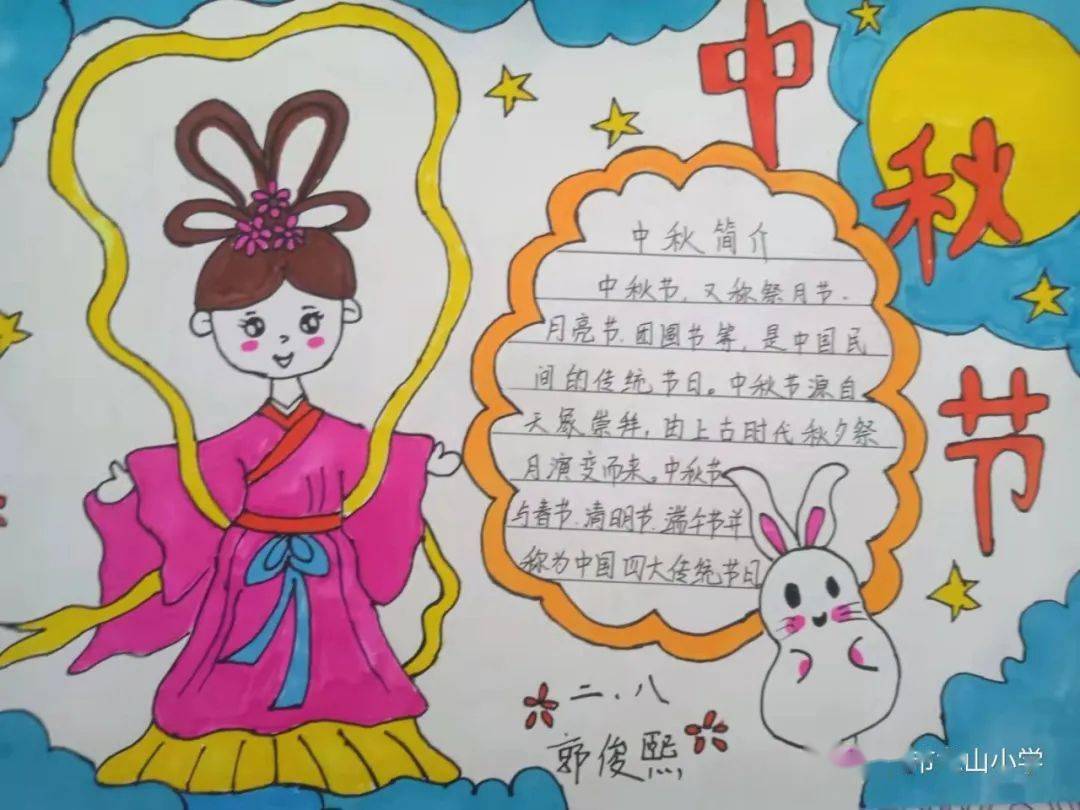 中秋节
中秋简介
中秋节,又称祭月节、
月亮节、团圆节等,是中国民
间的传统节日。中秋节源自
天象崇拜,由上古时代秋夕祭
月演变而来。中秋节
与春节、清明节、端午节并
称为中国四大传统节日
二、八
郭俊熙
山小学